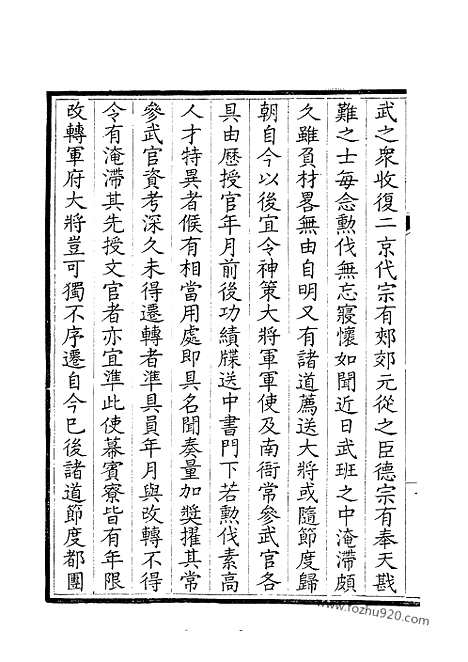 武之衆收復二京代宗有郊郊元從之臣德宗有奉天戡
難之士每念勲伐無忘寢懷如聞近日武班之中淹滯頗
久雖負材畧無由自明又有諸道薦送大將或隨節度歸
朝自今以後宜令神策大將軍軍使及南衙常參武官各
具由歴授官年月前後功績牒送中書門下若勲伐素高
人才特異者候有相當用處即具名聞奏量加奬擢其常
參武官資考深久未得遷轉者準具員年月與改轉不得
令有淹滯其先授文官者亦宜準此使幕賓寮皆有年限
改轉軍府大將豈可獨不序遷自今已後諸道節度都團
www.fozhu920.com